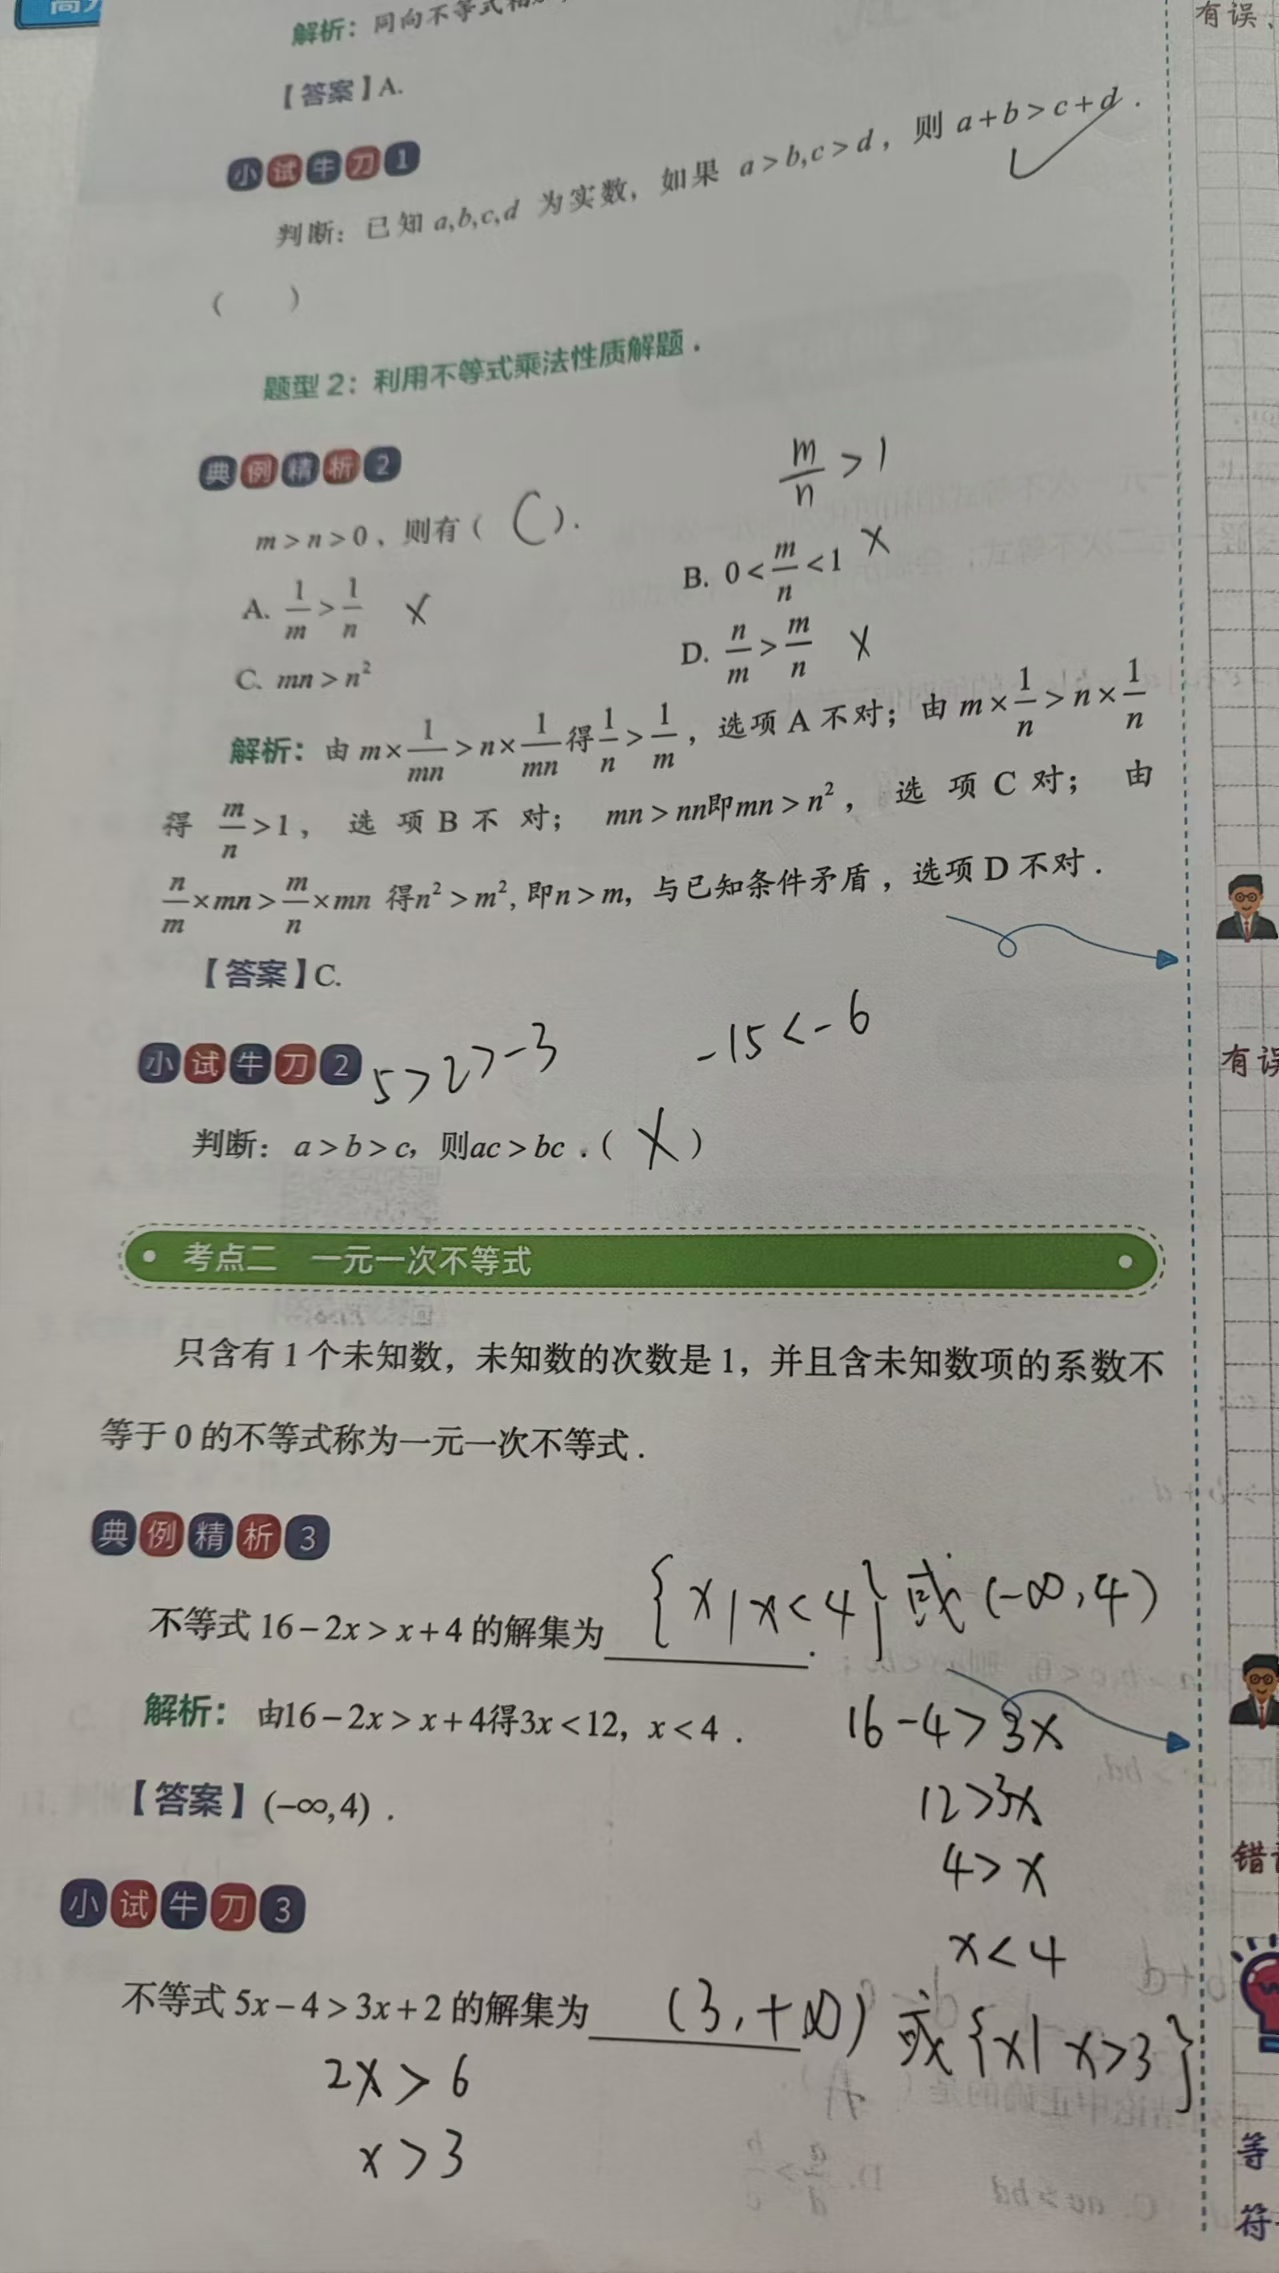 解析：同向不等式相
【答案】A.
小试牛刀1
判断：已知 a,b,c,d 为实数，如果 a>b,c>d，则 a+b>c+d. ✓
（　　）
题型2：利用不等式乘法性质解题.
典例精析2
m/n > 1
m>n>0、则有（ C ）.
A. 1/m > 1/n ×
B. 0 < m/n < 1 ×
C. mn>n²
D. n/m > m/n ×
解析：由 m×1/mn > n×1/mn 得 1/n > 1/m，选项A不对；由 m×1/n > n×1/n
得 m/n >1，选项B不对；mn>nn即mn>n²，选项C对；由
n/m ×mn > m/n ×mn 得n²>m², 即n>m, 与已知条件矛盾，选项D不对.
【答案】C.
小试牛刀2 5>2>-3 -15<-6
判断：a>b>c，则ac>bc.（ × ）
考点二 一元一次不等式
只含有1个未知数，未知数的次数是1，并且含未知数项的系数不
等于0的不等式称为一元一次不等式.
典例精析3
不等式16-2x>x+4的解集为 {x|x<4}或(-∞,4) .
解析：由16-2x>x+4得3x<12, x<4.
16-4>3x
【答案】(-∞,4).
12>3x
4>x
小试牛刀3
x<4
不等式5x-4>3x+2的解集为 (3,+∞)或{x|x>3}
2x>6
x>3
有误、
有误
错
等
符